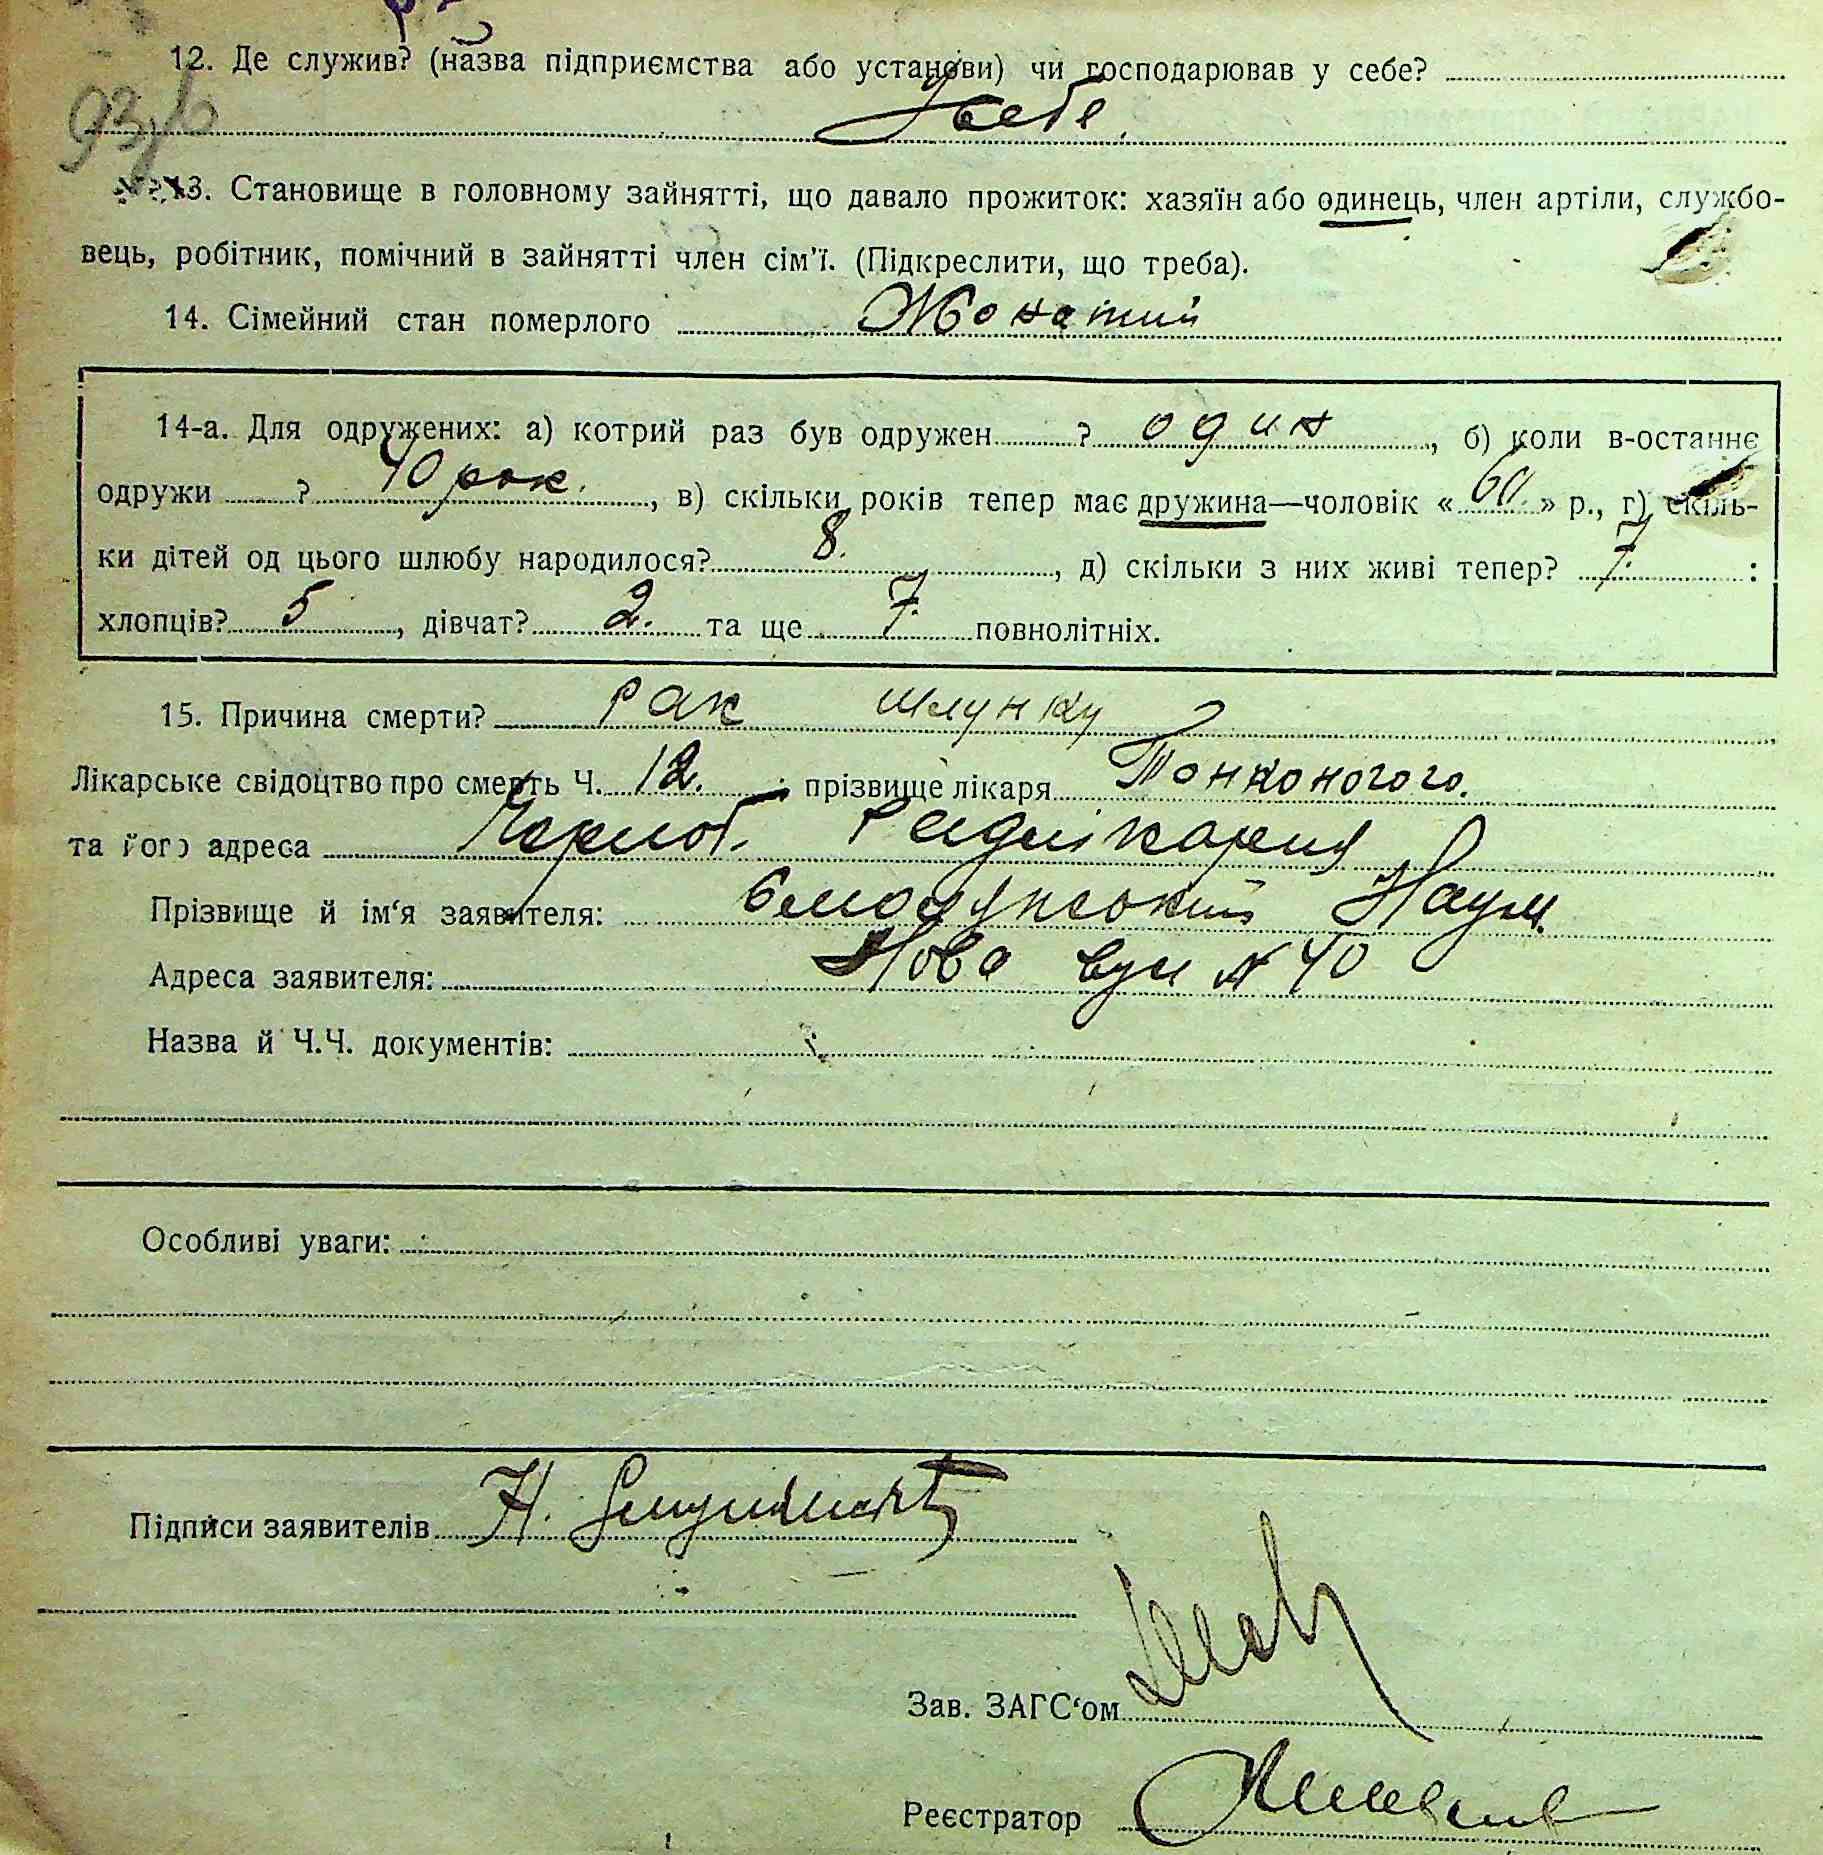 12. Де служив? (назва підприємства або установи) чи господарював у себе?
У себе.
13. Становище в головному зайнятті, що давало прожиток: хазяїн або одинець, член артіли, службо-
вець, робітник, помічний в зайнятті член сім'ї. (Підкреслити, що треба).
14. Сімейний стан померлого Жонатий
14-а. Для одружених: а) котрий раз був одружен ? один, б) коли в-останнє
одружи ? 40 рок., в) скільки років тепер має дружина—чоловік « 60 » р., г) скіль-
ки дітей од цього шлюбу народилося? 8., д) скільки з них живі тепер? 7 :
хлопців? 5, дівчат? 2. та ще 7 повнолітніх.
15. Причина смерти? рак шлунку
Лікарське свідоцтво про смерть Ч. 12. прізвище лікаря Тонконогого.
та його адреса Чорноб. Райлікарня
Прізвище й ім'я заявителя: Наум.
Адреса заявителя: Нова вул № 40
Назва й Ч.Ч. документів:
Особливі уваги:
Підписи заявителів Н.
Зав. ЗАГС'ом
Реєстратор